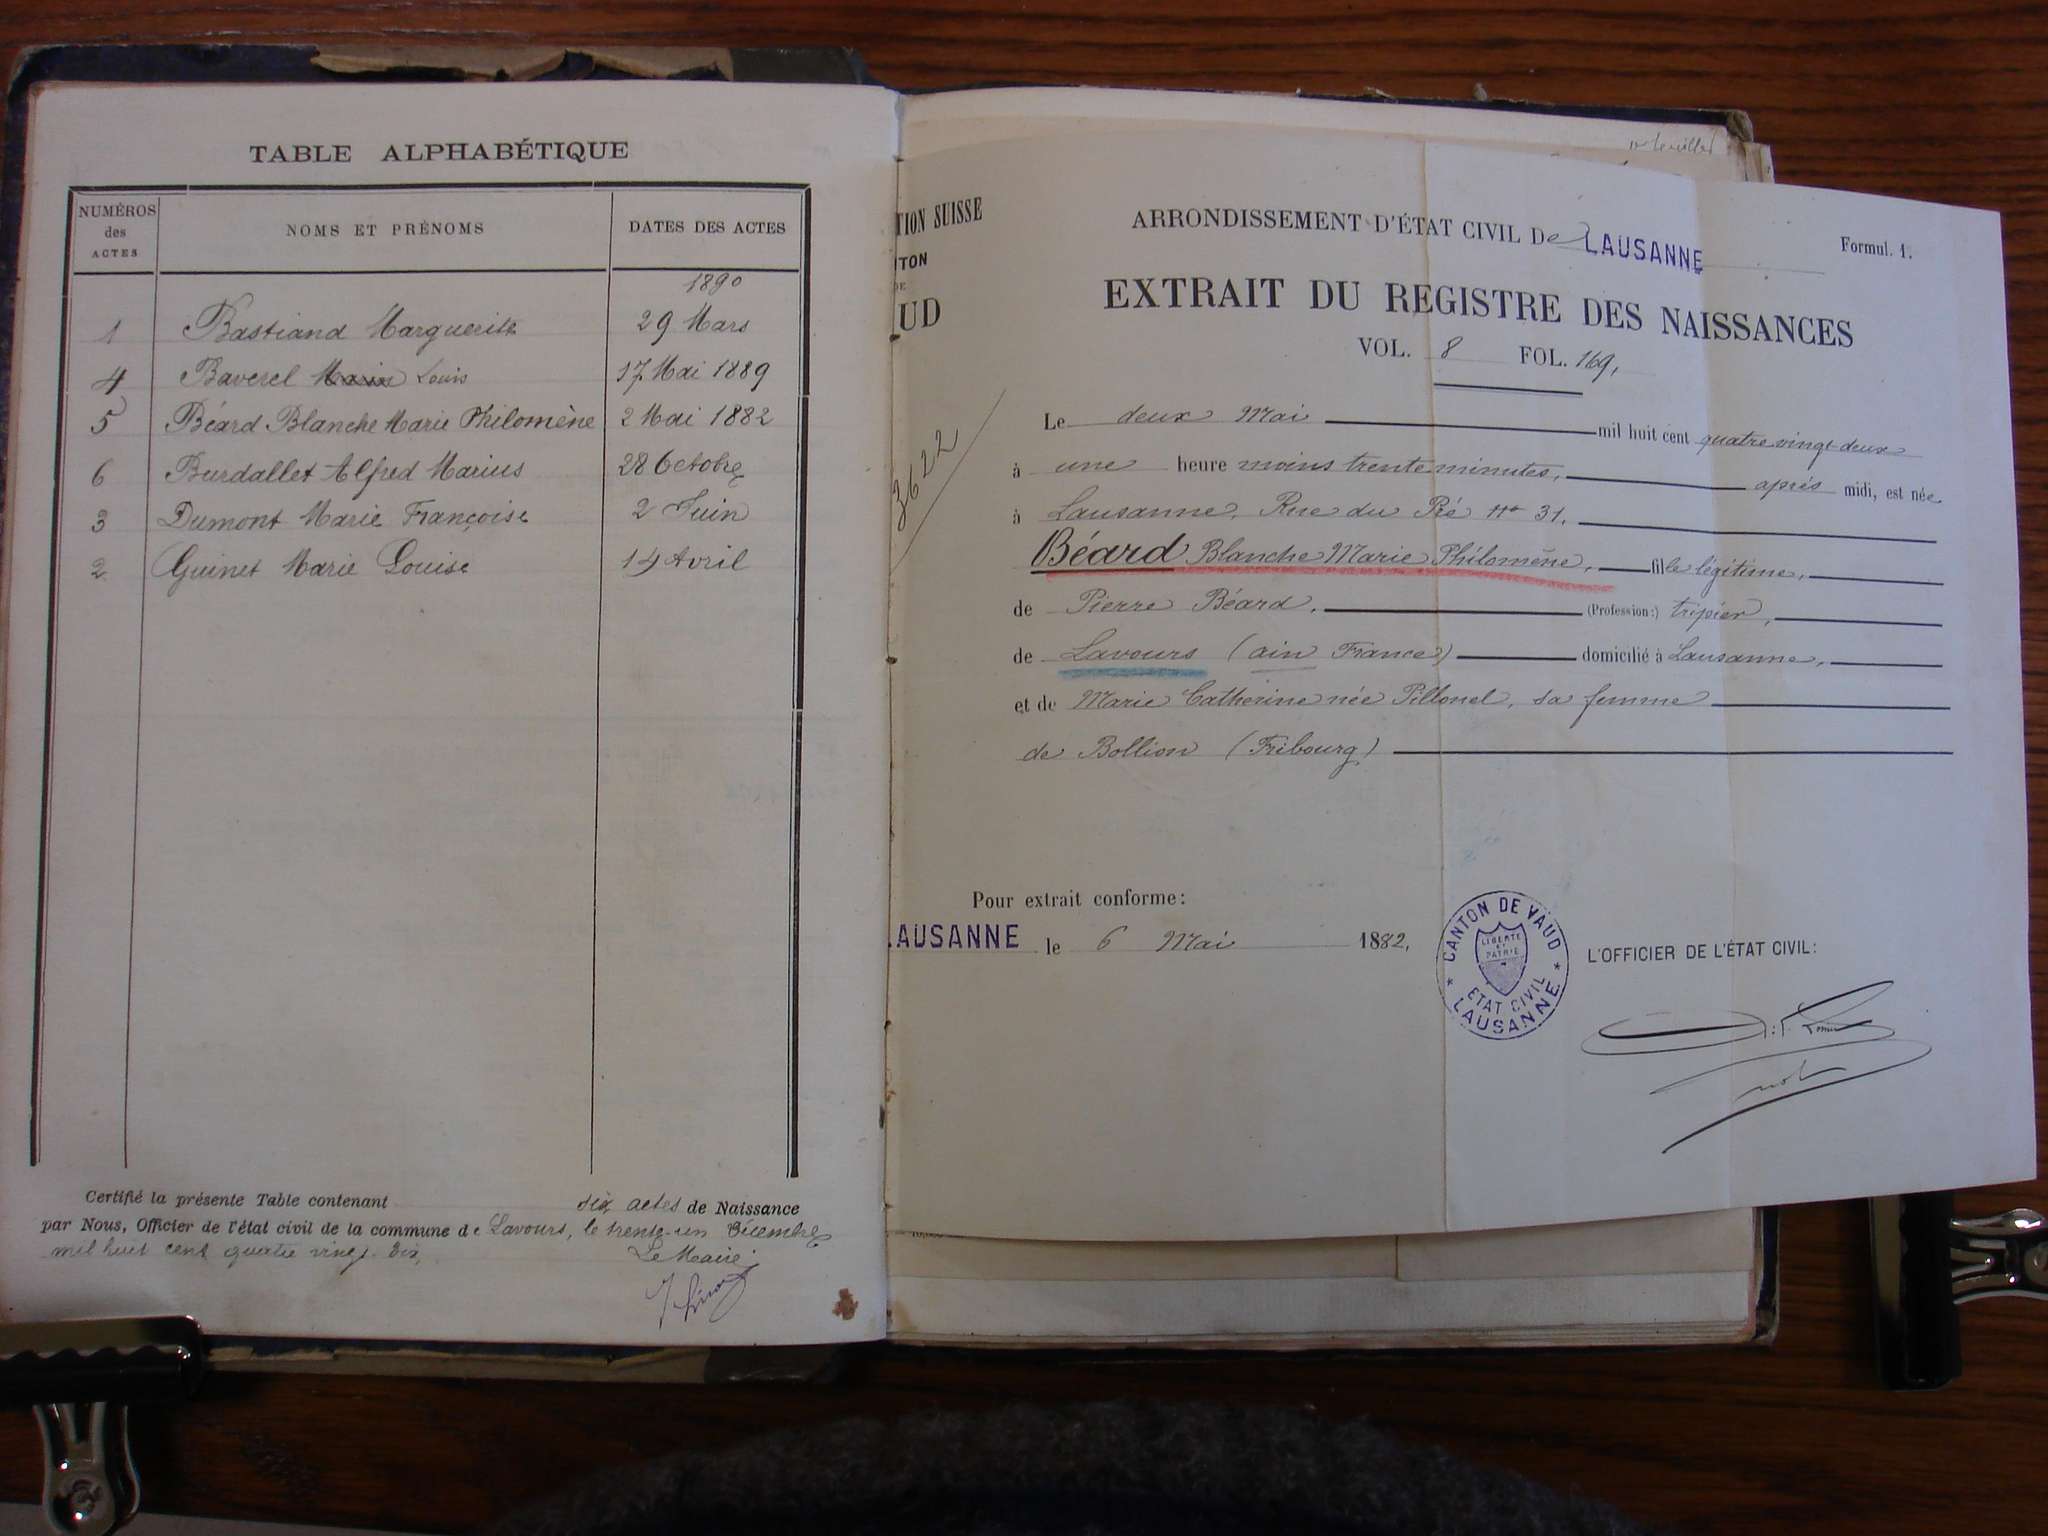 TABLE ALPHABÉTIQUE
NUMÉROS des ACTES
NOMS ET PRÉNOMS
DATES DES ACTES
1890
1 Bastiand Marguerite 29 Mars
4 Baverel Louis 17 Mai 1889
5 Béard Blanche Marie Philomène 2 Mai 1882
6 Burdallet Alfred Marius 28 Octobre
3 Dumont Marie Françoise 2 Juin
2 Guinet Marie Louise 14 Avril
Certifié la présente Table contenant six actes de Naissance
par Nous, Officier de l'état civil de la commune de Lavours, le trente-un Décembre
mil huit cent quatre vingt dix,
Le Maire
TION SUISSE
TON
DE
UD
3622
ARRONDISSEMENT D'ÉTAT CIVIL De LAUSANNE
Formul. 1.
EXTRAIT DU REGISTRE DES NAISSANCES
VOL. 8 FOL. 169,
Le deux Mai mil huit cent quatre vingt-deux
à une heure moins trente minutes, après midi, est née
à Lausanne, Rue du Pré No 31,
Béard Blanche Marie Philomène, fille légitime,
de Pierre Béard, (Profession:) tripier,
de Lavours (ain France) domicilié à Lausanne,
et de Marie Catherine née Pillonel, sa femme
de Bollion (Fribourg)
Pour extrait conforme:
LAUSANNE le 6 Mai 1882,
CANTON DE VAUD
LIBERTE ET PATRIE
ETAT CIVIL
LAUSANNE
L'OFFICIER DE L'ÉTAT CIVIL: